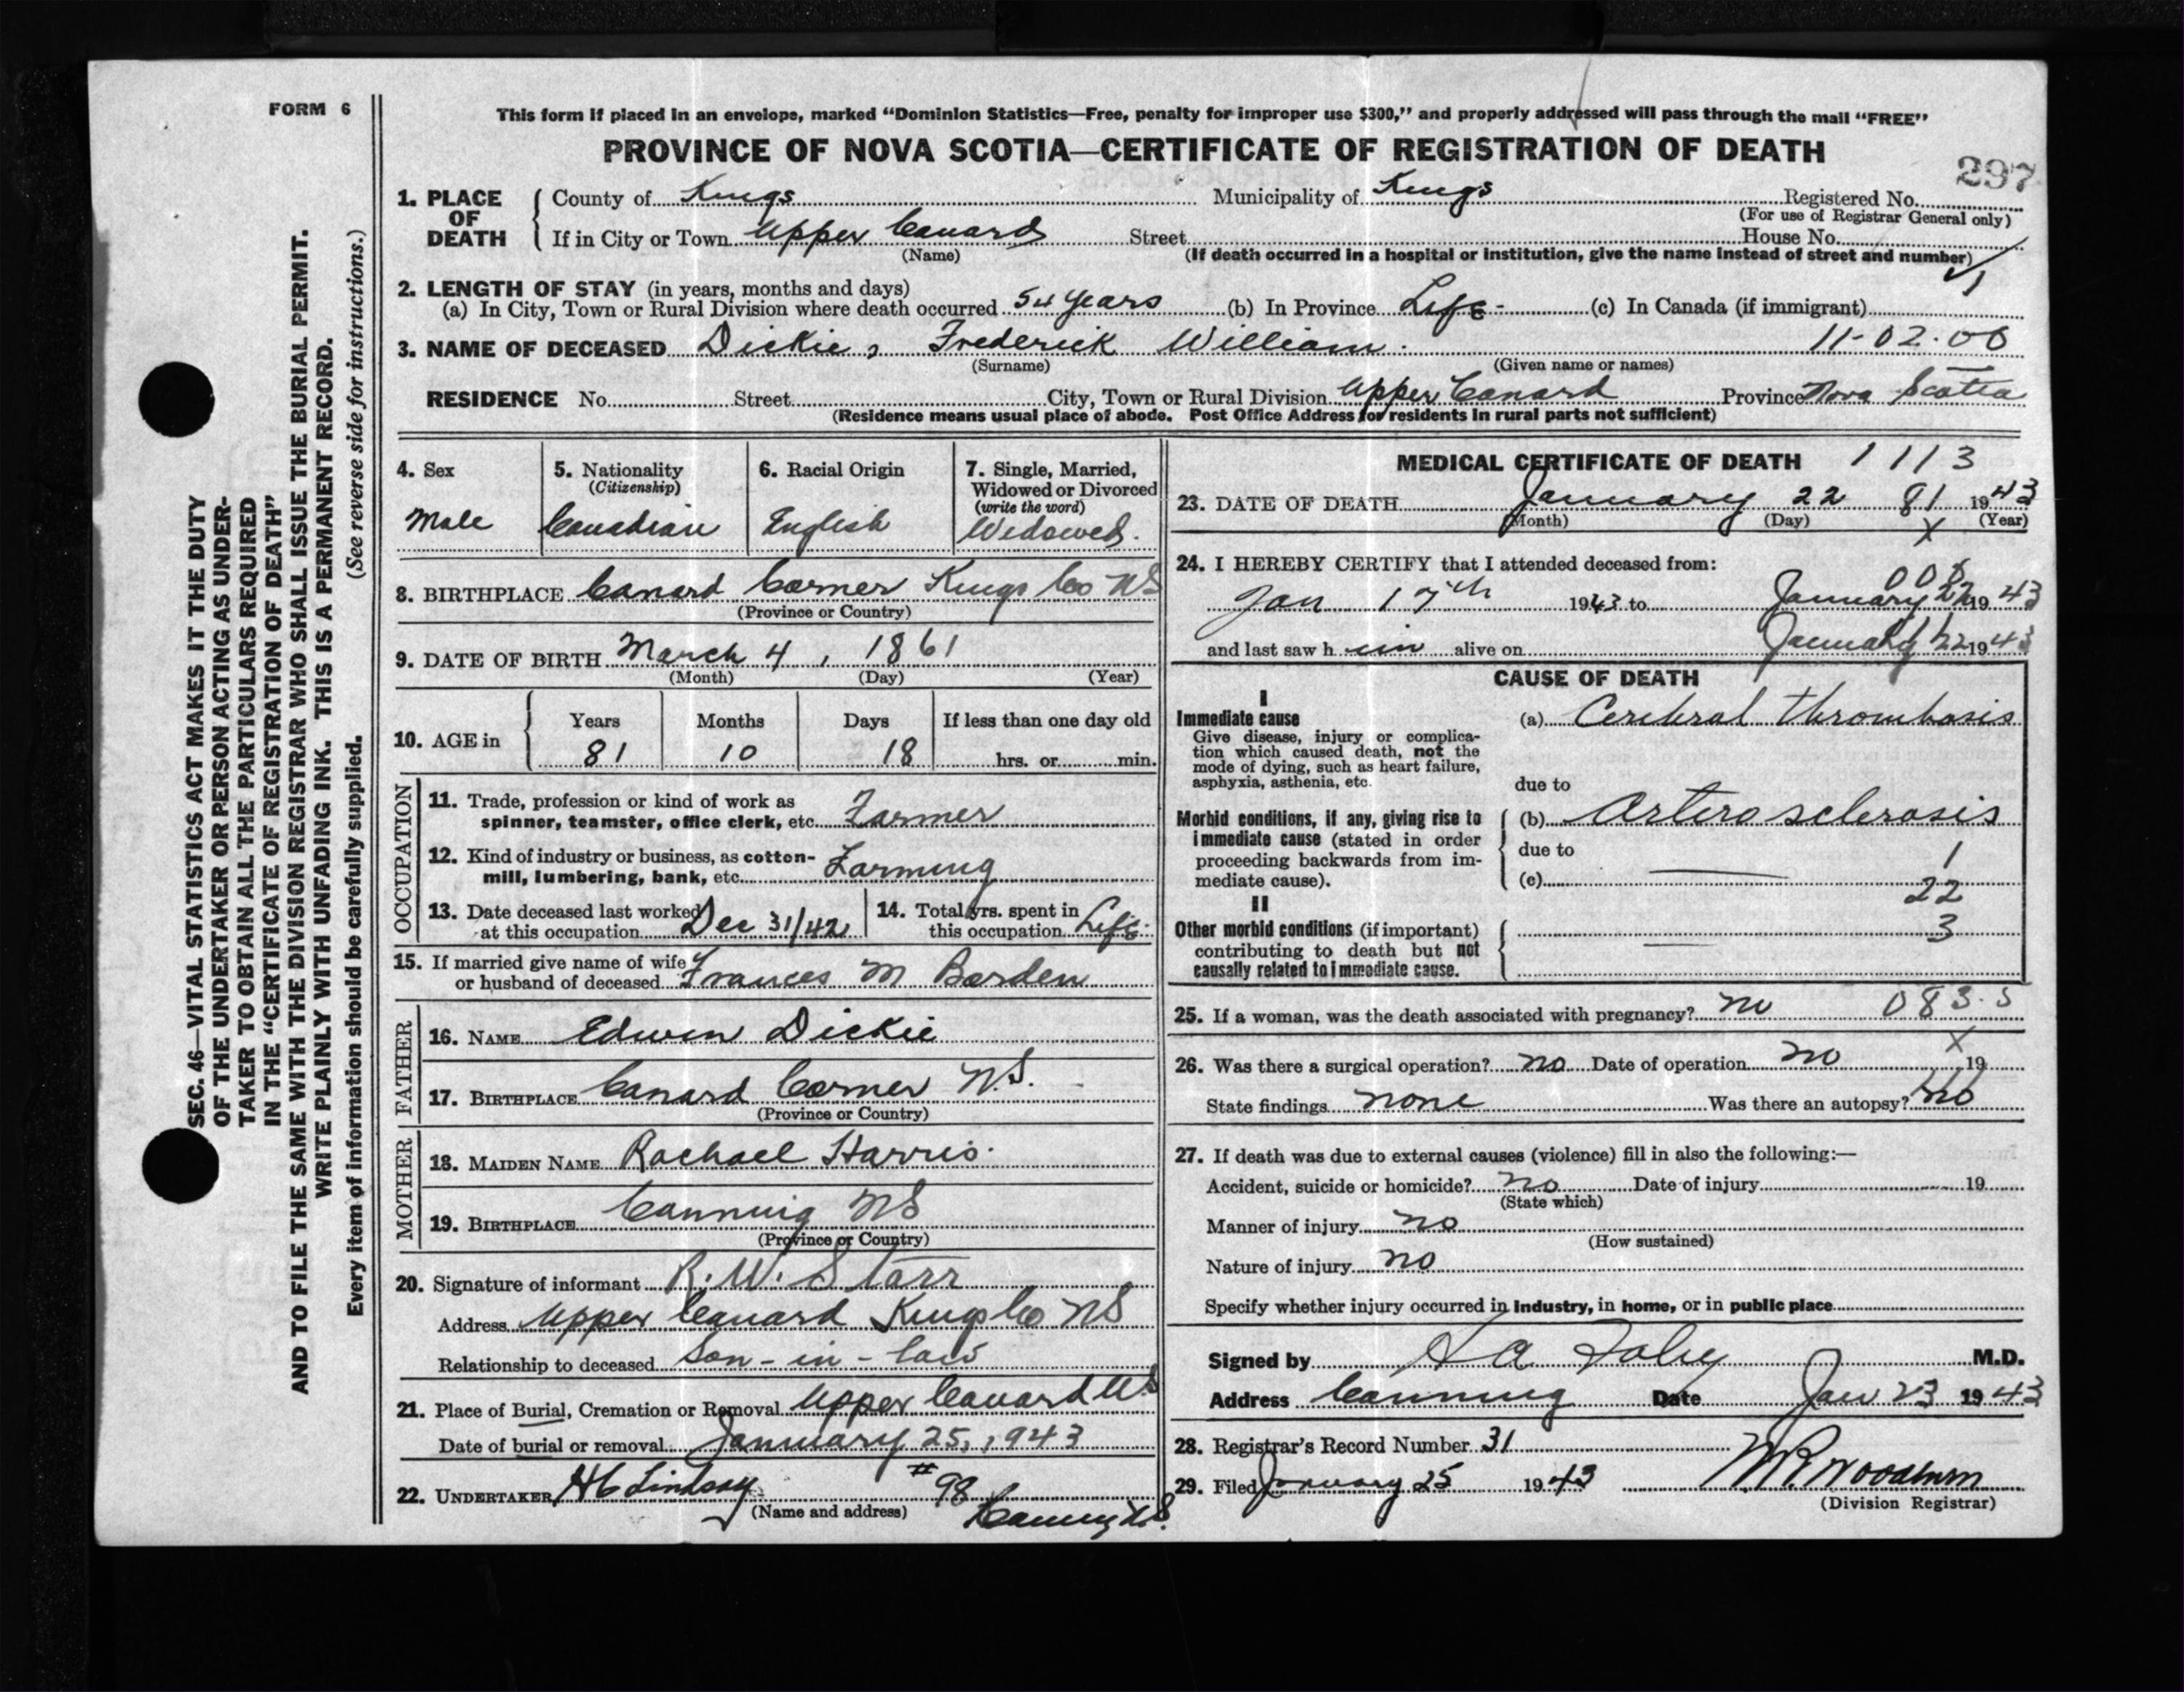 FORM 6
This form if placed in an envelope, marked “Dominion Statistics—Free, penalty for improper use $300,” and properly addressed will pass through the mail “FREE”
PROVINCE OF NOVA SCOTIA—CERTIFICATE OF REGISTRATION OF DEATH
297
1. PLACE OF DEATH
County of Kings Municipality of Kings Registered No.
(For use of Registrar General only)
If in City or Town Upper Canard Street House No.
(Name) (If death occurred in a hospital or institution, give the name instead of street and number)
2. LENGTH OF STAY (in years, months and days)
(a) In City, Town or Rural Division where death occurred 54 years (b) In Province Life - (c) In Canada (if immigrant)
3. NAME OF DECEASED Dickie, Frederick William. 11-02.00
(Surname) (Given name or names)
RESIDENCE No. Street City, Town or Rural Division Upper Canard Province Nova Scotia
(Residence means usual place of abode. Post Office Address for residents in rural parts not sufficient)
4. Sex
Male
5. Nationality
(Citizenship)
Canadian
6. Racial Origin
English
7. Single, Married,
Widowed or Divorced
(write the word)
Widowed.
8. BIRTHPLACE Canard Corner Kings Co NS
(Province or Country)
9. DATE OF BIRTH March 4, 1861
(Month) (Day) (Year)
10. AGE in
Years Months Days If less than one day old
81 10 18 hrs. or min.
OCCUPATION
11. Trade, profession or kind of work as
spinner, teamster, office clerk, etc. Farmer
12. Kind of industry or business, as cotton-
mill, lumbering, bank, etc. Farming
13. Date deceased last worked
at this occupation Dec 31/42
14. Total yrs. spent in
this occupation Life.
15. If married give name of wife
or husband of deceased Frances M Borden
FATHER
16. NAME Edwin Dickie
17. BIRTHPLACE Canard Corner N.S.
(Province or Country)
MOTHER
18. MAIDEN NAME Rachael Harris.
19. BIRTHPLACE Canning NS
(Province or Country)
20. Signature of informant R. W. Starr
Address Upper Canard Kings Co NS
Relationship to deceased Son-in-law
21. Place of Burial, Cremation or Removal Upper Canard NS
Date of burial or removal January 25, 1943
22. UNDERTAKER HC Lindsay #98
(Name and address) Canning N.S.
MEDICAL CERTIFICATE OF DEATH 1113
23. DATE OF DEATH January 22 81 1943
(Month) (Day) X (Year)
24. I HEREBY CERTIFY that I attended deceased from:
Jan 17th 1943 to January 22 1943
and last saw h im alive on January 22 1943
CAUSE OF DEATH
I
Immediate cause
Give disease, injury or complica-
tion which caused death, not the
mode of dying, such as heart failure,
asphyxia, asthenia, etc.
(a) Cerebral thrombosis
due to
Morbid conditions, if any, giving rise to
immediate cause (stated in order
proceeding backwards from im-
mediate cause).
(b) Arterosclerosis
due to
1
(c)
22
II
Other morbid conditions (if important)
contributing to death but not
causally related to immediate cause.
3
25. If a woman, was the death associated with pregnancy? no 083.5
X
26. Was there a surgical operation? no Date of operation no 19
State findings none Was there an autopsy? No
27. If death was due to external causes (violence) fill in also the following:—
Accident, suicide or homicide? no Date of injury 19
(State which)
Manner of injury no
(How sustained)
Nature of injury no
Specify whether injury occurred in industry, in home, or in public place
Signed by M.D.
Address Canning Date Jan 23 1943
28. Registrar's Record Number 31
29. Filed January 25 1943 Woodburn
(Division Registrar)
SEC. 46—VITAL STATISTICS ACT MAKES IT THE DUTY
OF THE UNDERTAKER OR PERSON ACTING AS UNDER-
TAKER TO OBTAIN ALL THE PARTICULARS REQUIRED
IN THE “CERTIFICATE OF REGISTRATION OF DEATH”
AND TO FILE THE SAME WITH THE DIVISION REGISTRAR WHO SHALL ISSUE THE BURIAL PERMIT.
WRITE PLAINLY WITH UNFADING INK. THIS IS A PERMANENT RECORD.
Every item of information should be carefully supplied. (See reverse side for instructions.)